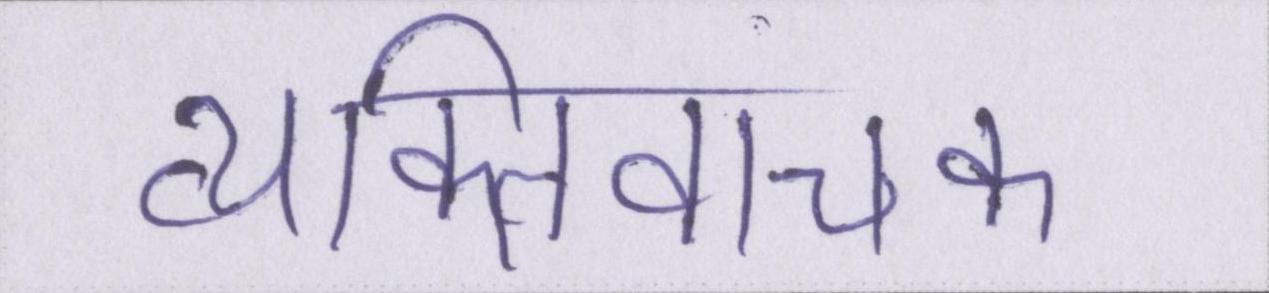 व्यक्तिवाचक